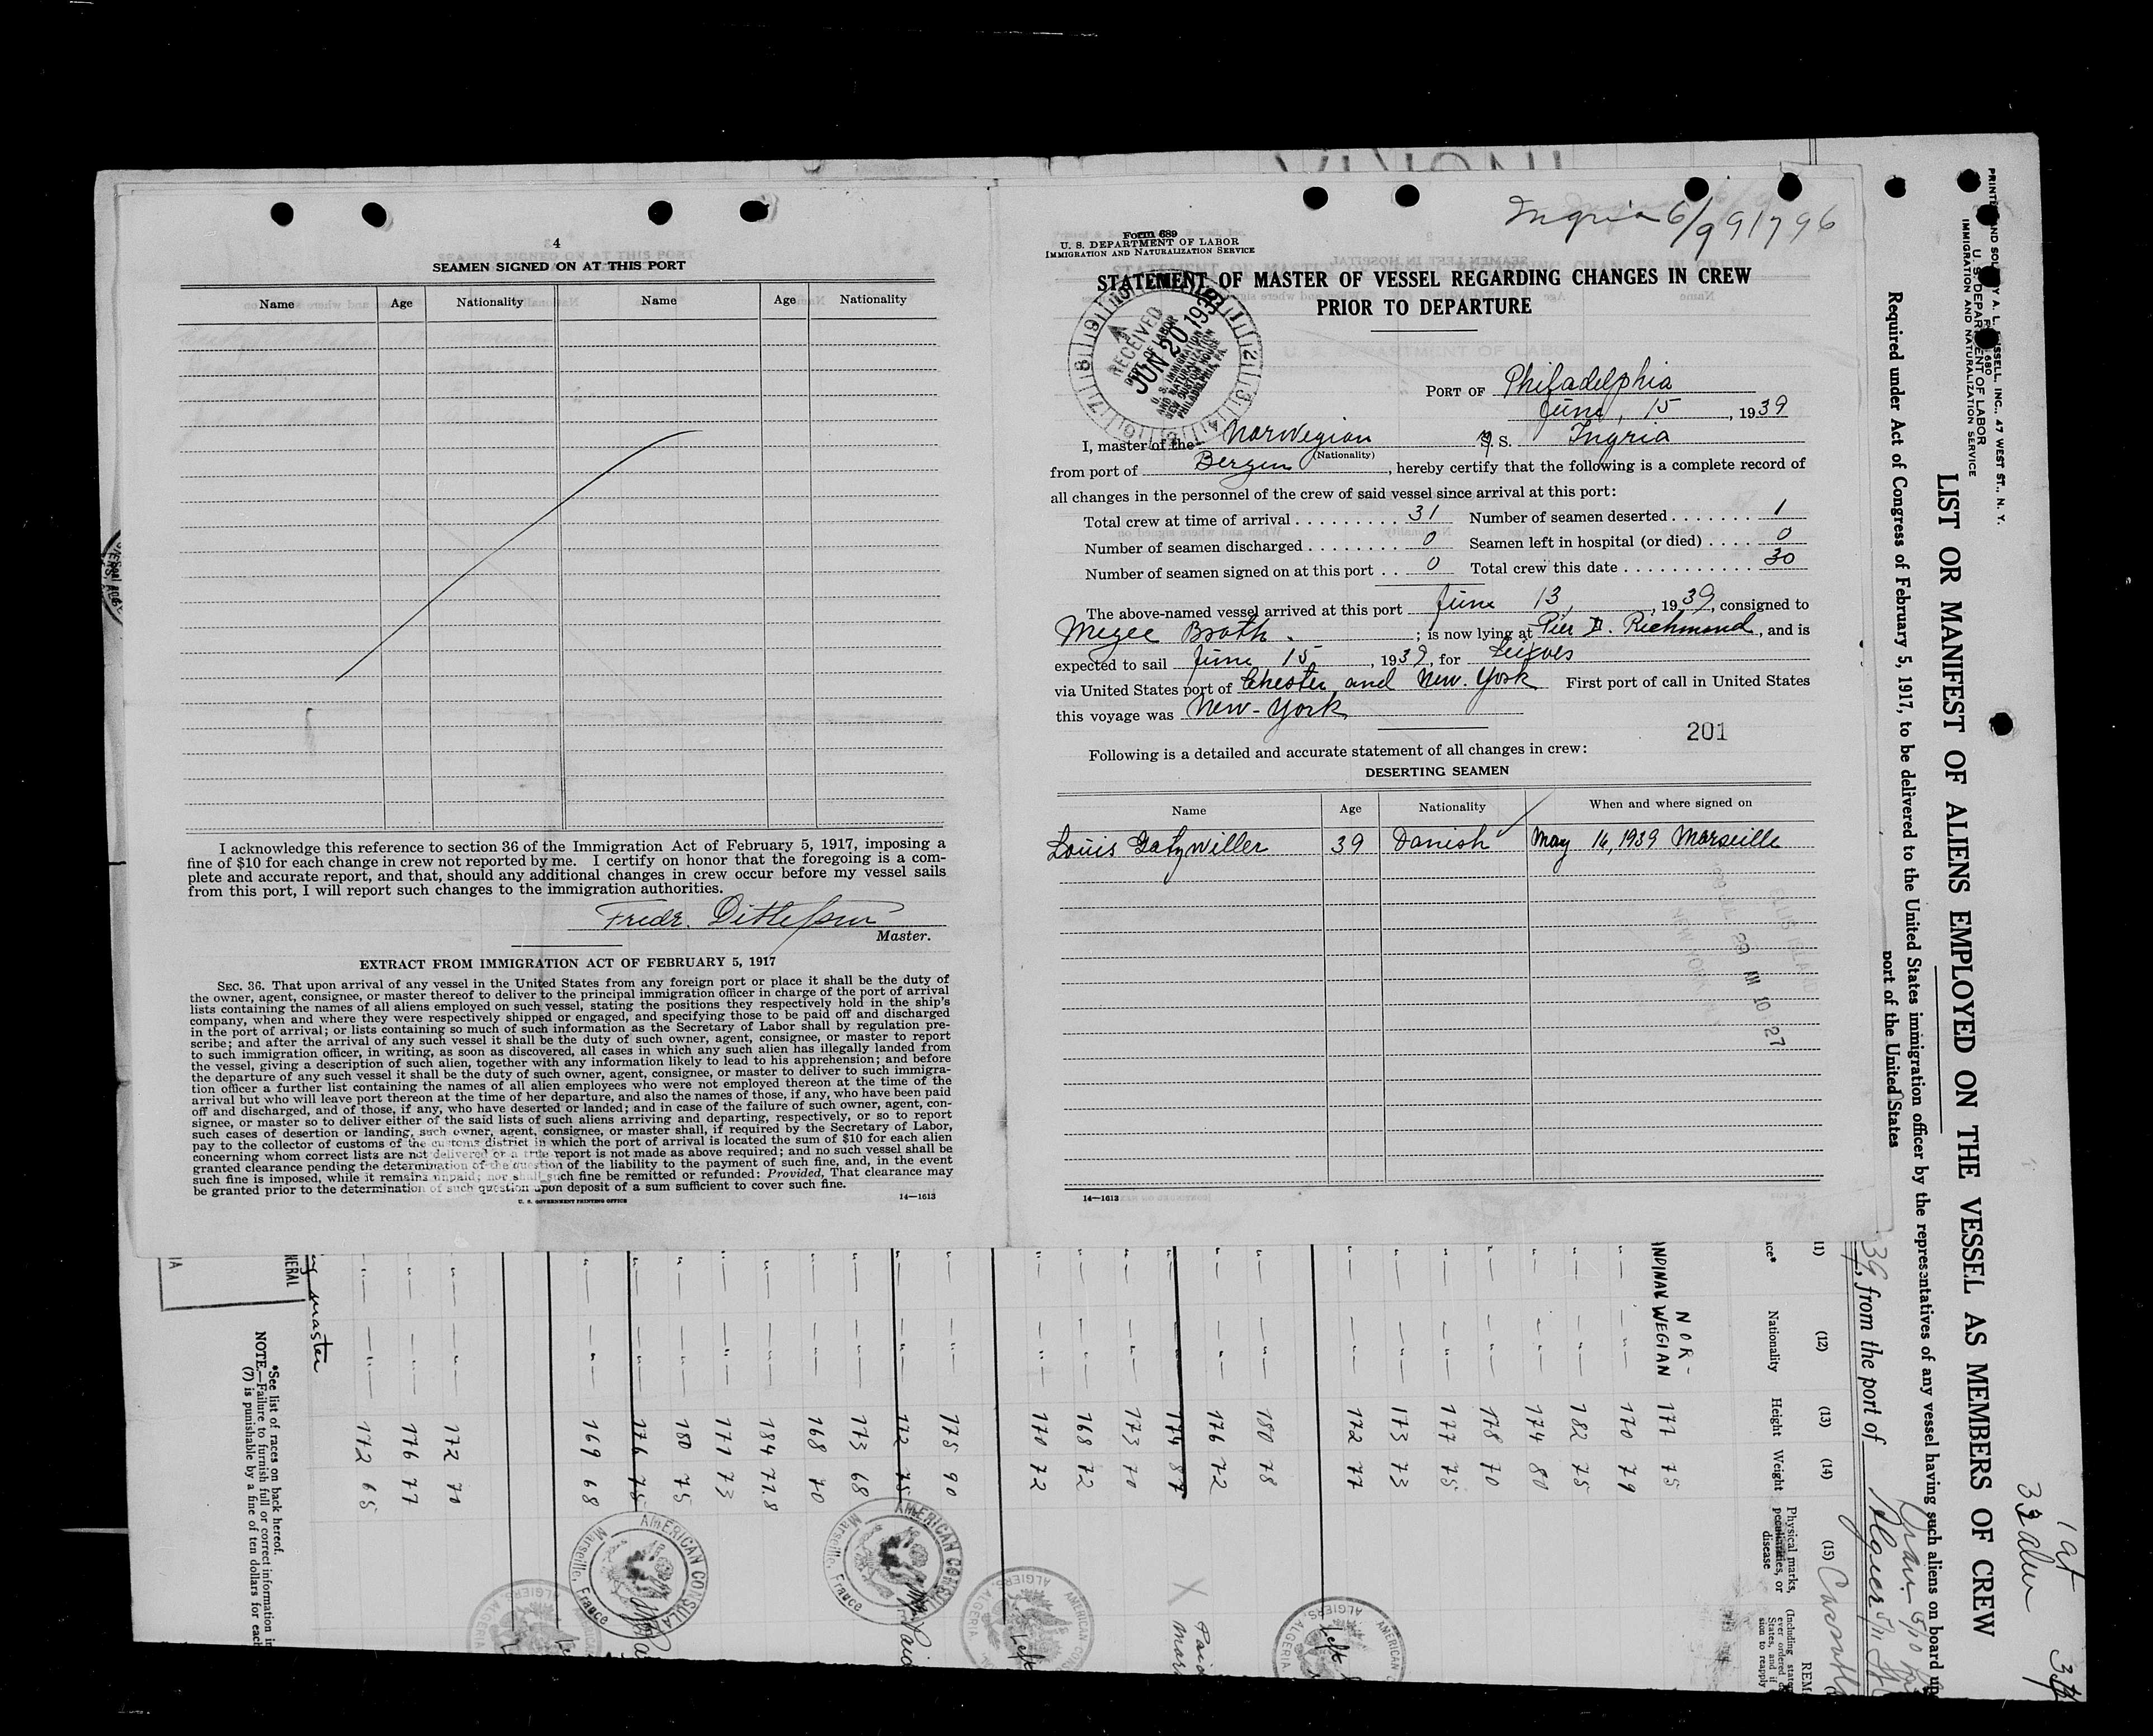 4
SEAMEN SIGNED ON AT THIS PORT
Name Age Nationality Name Age Nationality
I acknowledge this reference to section 36 of the Immigration Act of February 5, 1917, imposing a
fine of $10 for each change in crew not reported by me. I certify on honor that the foregoing is a com-
plete and accurate report, and that, should any additional changes in crew occur before my vessel sails
from this port, I will report such changes to the immigration authorities.
Fredr. Ditlefsen
Master.
EXTRACT FROM IMMIGRATION ACT OF FEBRUARY 5, 1917
SEC. 36. That upon arrival of any vessel in the United States from any foreign port or place it shall be the duty of
the owner, agent, consignee, or master thereof to deliver to the principal immigration officer in charge of the port of arrival
lists containing the names of all aliens employed on such vessel, stating the positions they respectively hold in the ship's
company, when and where they were respectively shipped or engaged, and specifying those to be paid off and discharged
in the port of arrival; or lists containing so much of such information as the Secretary of Labor shall by regulation pre-
scribe; and after the arrival of any such vessel it shall be the duty of such owner, agent, consignee, or master to report
to such immigration officer, in writing, as soon as discovered, all cases in which any such alien has illegally landed from
the vessel, giving a description of such alien, together with any information likely to lead to his apprehension; and before
the departure of any such vessel it shall be the duty of such owner, agent, consignee, or master to deliver to such immigra-
tion officer a further list containing the names of all alien employees who were not employed thereon at the time of the
arrival but who will leave port thereon at the time of her departure, and also the names of those, if any, who have been paid
off and discharged, and of those, if any, who have deserted or landed; and in case of the failure of such owner, agent, con-
signee, or master so to deliver either of the said lists of such aliens arriving and departing, respectively, or so to report
such cases of desertion or landing, such owner, agent, consignee, or master shall, if required by the Secretary of Labor,
pay to the collector of customs of the customs district in which the port of arrival is located the sum of $10 for each alien
concerning whom correct lists are not delivered or a true report is not made as above required; and no such vessel shall be
granted clearance pending the determination of the question of the liability to the payment of such fine, and, in the event
such fine is imposed, while it remains unpaid; nor shall such fine be remitted or refunded: Provided, That clearance may
be granted prior to the determination of such question upon deposit of a sum sufficient to cover such fine.
U. S. GOVERNMENT PRINTING OFFICE 14—1613
Ingria 6/9 91796
Form 689
U. S. DEPARTMENT OF LABOR
IMMIGRATION AND NATURALIZATION SERVICE
STATEMENT OF MASTER OF VESSEL REGARDING CHANGES IN CREW
PRIOR TO DEPARTURE
RECEIVED
DEPT. OF LABOR
JUN 20 1939
U. S. IMMIGRATION
AND NATURALIZATION
NEW CUSTOM HOUSE
PHILADELPHIA, PA.
PORT OF Philadelphia
June, 15, 1939
I, master of the Norwegian M. S. Ingria
(Nationality)
from port of Bergen, hereby certify that the following is a complete record of
all changes in the personnel of the crew of said vessel since arrival at this port:
Total crew at time of arrival 31 Number of seamen deserted 1
Number of seamen discharged 0 Seamen left in hospital (or died) 0
Number of seamen signed on at this port 0 Total crew this date 30
The above-named vessel arrived at this port June 13, 1939, consigned to
Megee Broth.; is now lying at Pier D. Richmond, and is
expected to sail June 15, 1939, for
via United States port of Chester and New-York First port of call in United States
this voyage was New-York
201
Following is a detailed and accurate statement of all changes in crew:
DESERTING SEAMEN
Name Age Nationality When and where signed on
Louis Gatzwiller 39 Danish May 16, 1939 Marseille
ELLIS ISLAND
NEW YORK
AM 10 27
14—1613
PRINTED AND SOLD BY A. L. RUSSELL, INC., 47 WEST ST., N. Y.
U. S. DEPARTMENT OF LABOR
IMMIGRATION AND NATURALIZATION SERVICE
LIST OR MANIFEST OF ALIENS EMPLOYED ON THE VESSEL AS MEMBERS OF CREW
Required under Act of Congress of February 5, 1917, to be delivered to the United States immigration officer by the representatives of any vessel having such aliens on board up
port of the United States
39, from the port of Algier
(12) (13) (14) (15)
Nationality Height Weight Physical marks, peculiarities, or disease
NOR-
WEGIAN 177 75
170 79
182 75
174 80
178 70
177 75
173 73
172 77
180 78
176 72
174 87
173 70
168 72
170 72
175 90
172 75
173 68
168 70
184 77.8
171 73
180 75
176 75
169 68
172 70
176 77
172 65
AMERICAN CONSULATE
Marseille, France
AMERICAN CONSULATE
Marseille, France
ALGIERS, ALGERIA
master
*See list of races on back hereof.
NOTE.—Failure to furnish full or correct information in
(7) is punishable by a fine of ten dollars for each